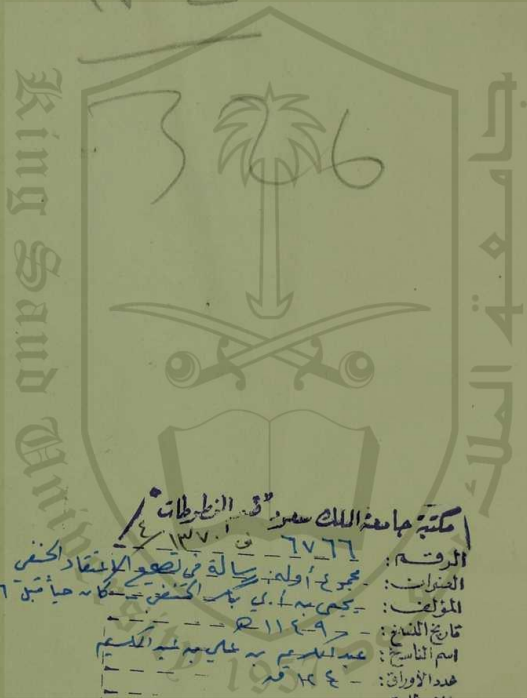 366
King Saud University
مكتبة جامعة الملك سعود "قسم المخطوطات"
الرقم: ٦٧٦٦ ف ١٣٧٠/٤
العنوان: مجموع أوله: رسالة في تصحيح الاعتقاد الحنفي
المؤلف: يحيى بن أبي بكر الحنفي كان حيا قبل
تاريخ النسخ: ١١٤٩هـ
اسم الناسخ: عبد الكريم بن علي بن عبد الكريم
عدد الأوراق: ١٢٤ ق
1957